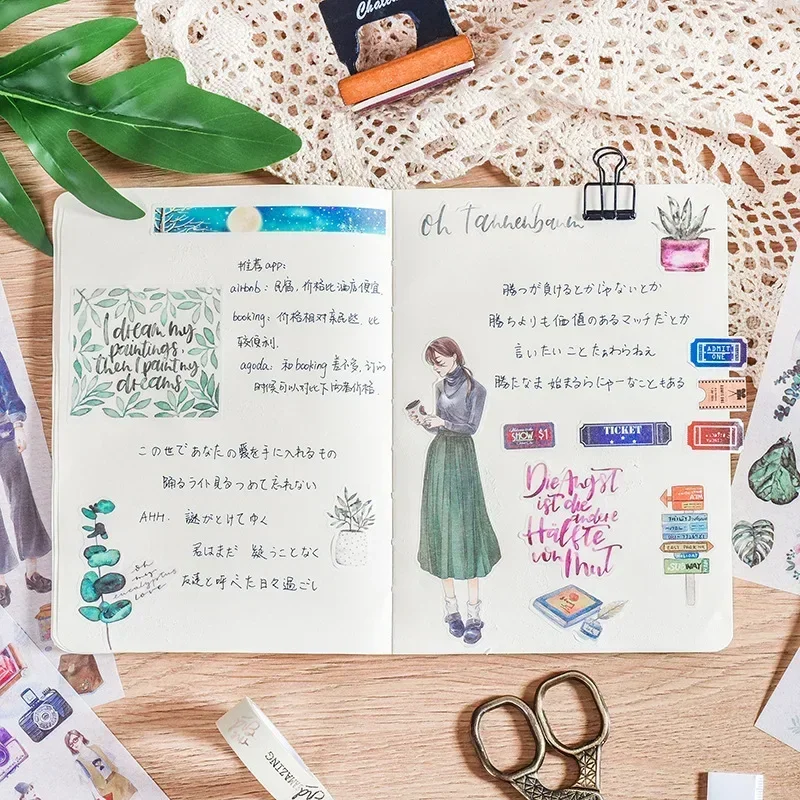 Chate
oh Tannenbaum
推荐app：
airbnb：民宿，价格比酒店便宜
booking：价格相对亲民些，比
较便利.
agoda：和booking差不多，订的
时候可以对比下两者价格.
I dream my
paintings,
then I paint my
dreams
この世であなたの愛を手に入れるもの
踊るライト見るつめて忘れない
AHH. 謎がとけてゆく
君はまだ 疑うことなく
友達と呼べた日々過ごし
oh
my
eucalyptus
love
勝つが負けるとかじゃないとか
勝ちよりも価値のあるマッチだとか
言いたいことたぁわらねぇ
勝たなま始まるらにゃーなこともある
ADMIT
ONE
SHOW $1
TICKET
Die Angst
ist die
andere
Hälfte
von Mut
EASY PARKING
SUBWAY
AMAZING